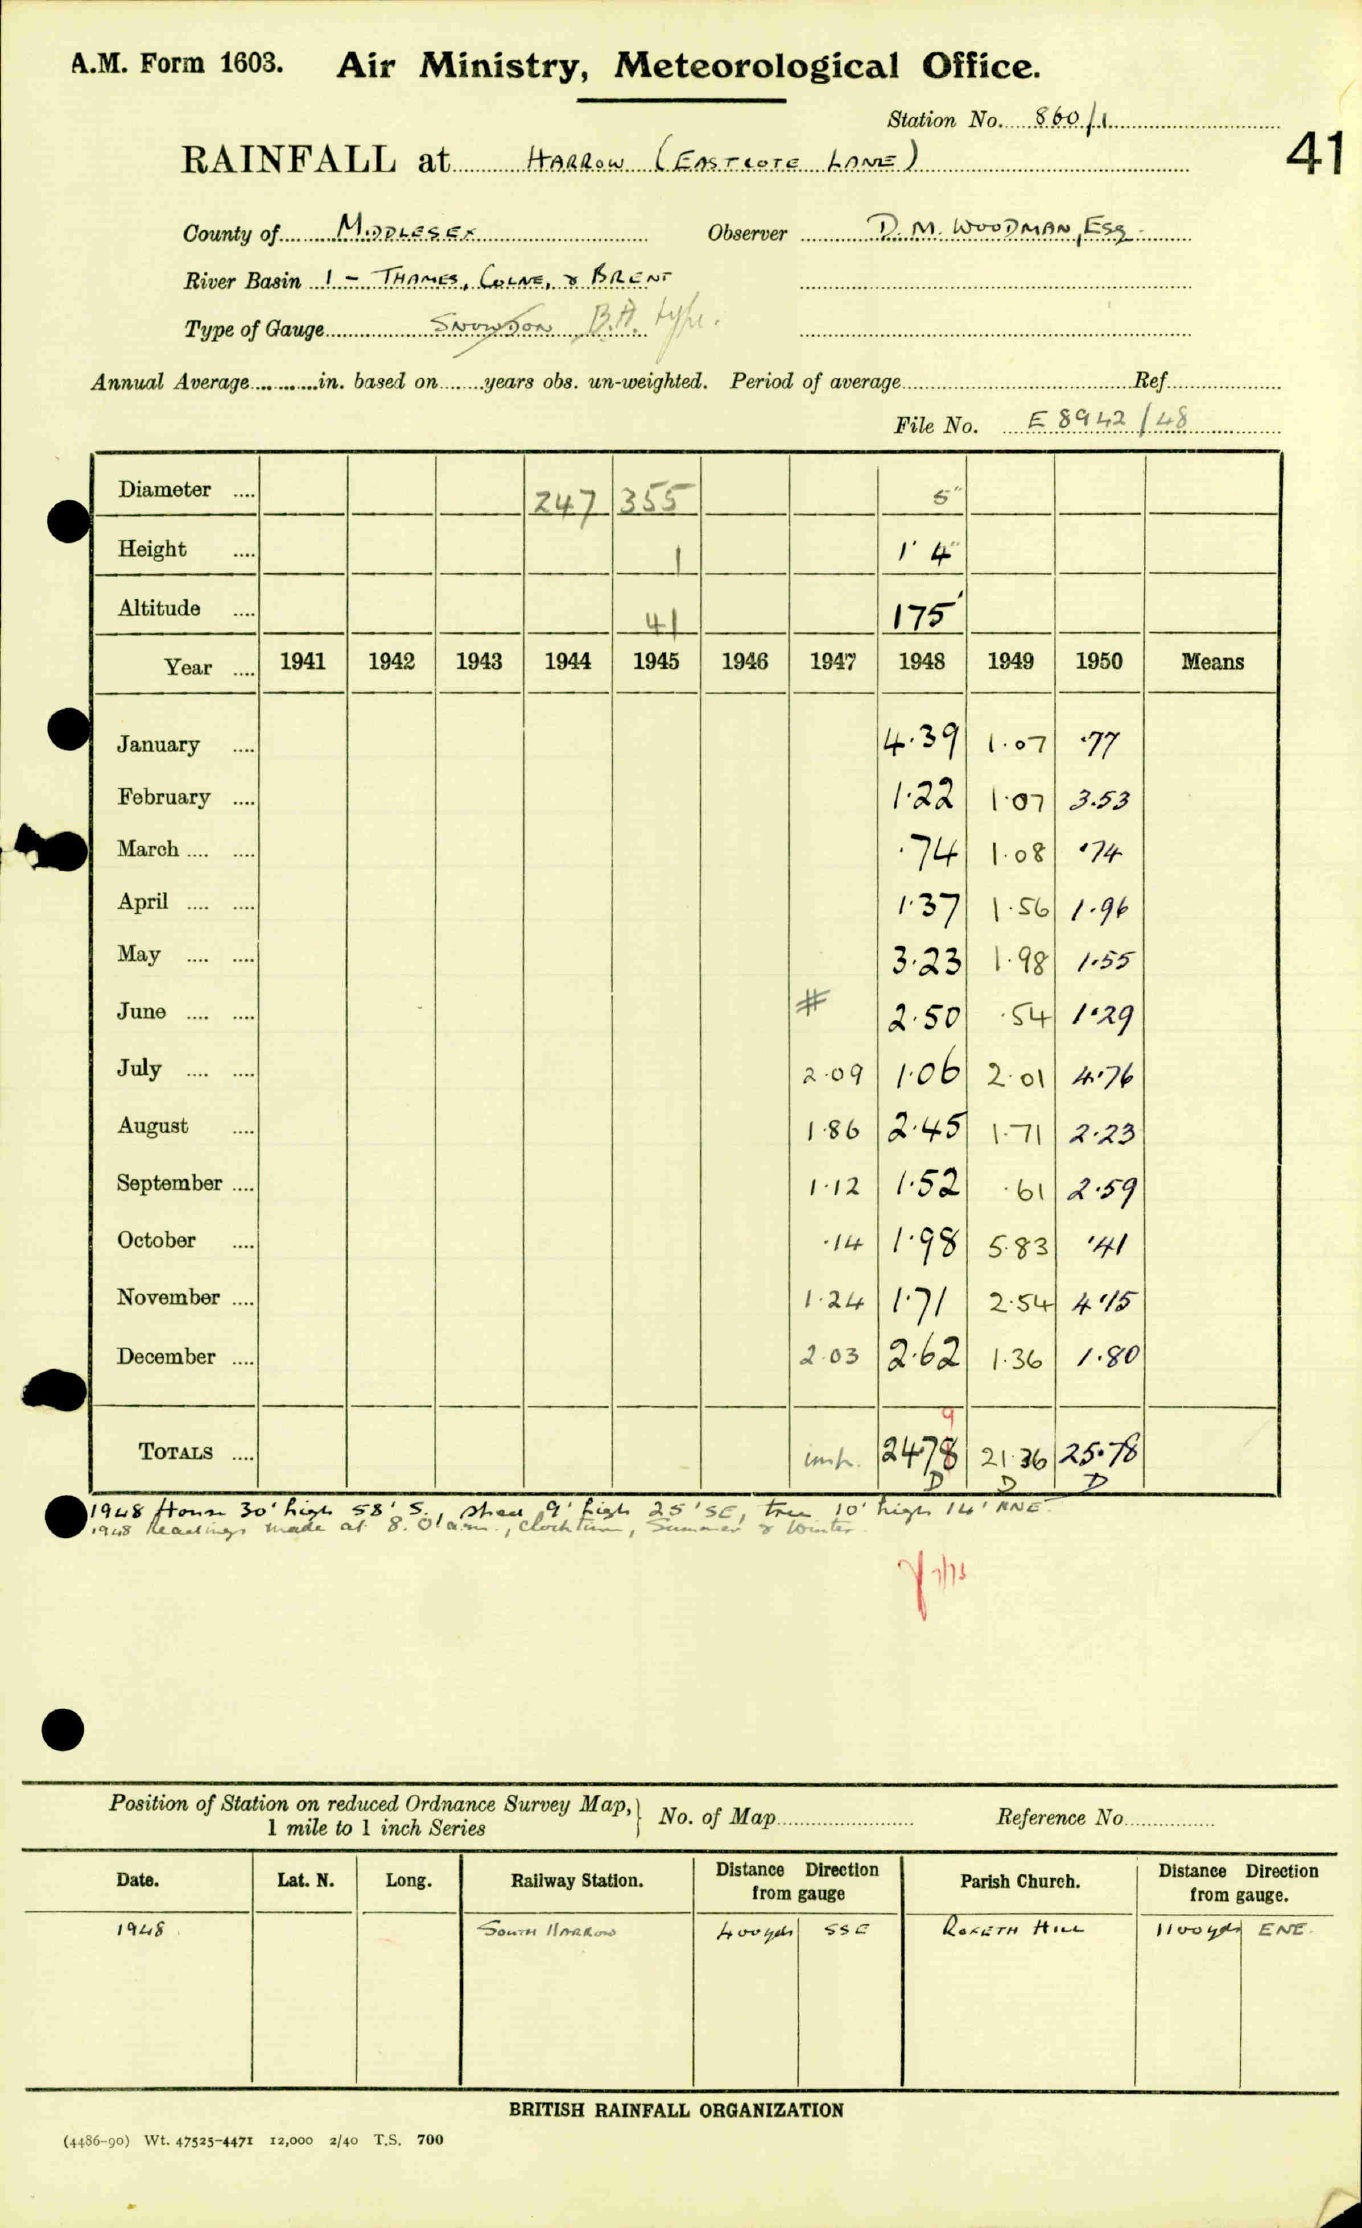 A.M. Form 1603. Air Ministry, Meteorological Office.
Station No. 860/1
41
RAINFALL at HARROW (EASTCOTE LANE)
County of MIDDLESEX Observer D. M. WOODMAN, Esq.
River Basin 1 - THAMES, COLNE, & BRENT
Type of Gauge SNOWDON B.A. type.
Annual Average in. based on years obs. un-weighted. Period of average Ref.
File No. E 8942/48
Diameter 247 355 5"
Height 1 1' 4"
Altitude 41 175'
Year 1941 1942 1943 1944 1945 1946 1947 1948 1949 1950 Means
January 4.39 1.07 .77
February 1.22 1.07 3.53
March .74 1.08 .74
April 1.37 1.56 1.96
May 3.23 1.98 1.55
June # 2.50 .54 1.29
July 2.09 1.06 2.01 4.76
August 1.86 2.45 1.71 2.23
September 1.12 1.52 .61 2.59
October .14 1.98 5.83 .41
November 1.24 1.71 2.54 4.15
December 2.03 2.62 1.36 1.80
9
TOTALS 24.78 21.36 25.78
D D D
1948 House 30' high 58' S., shed 9' high 25' SE, tree 10' high 14' NNE
1948 Readings made at 8.0 a.m., clock time, Summer & Winter.
Position of Station on reduced Ordnance Survey Map, 1 mile to 1 inch Series No. of Map Reference No.
Date. Lat. N. Long. Railway Station. Distance Direction from gauge Parish Church. Distance Direction from gauge.
1948 SOUTH HARROW 400 yds SSE ROXETH HILL 1100 yds ENE.
BRITISH RAINFALL ORGANIZATION
(4486-90) Wt. 47525-4471 12,000 2/40 T.S. 700